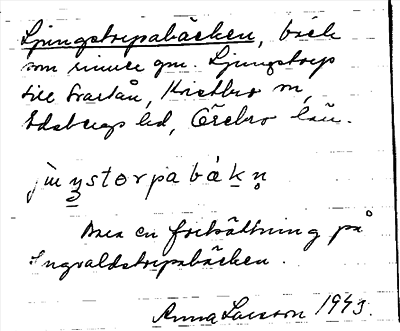 Ljungstorpabäcken, bäck
som rinner gm. Ljungstorp
till Svartån, Kvistbro sn,
Edsbergs hd, Örebro län.
juŋstorpabäkn
Bara en fortsättning på
Ingvaldstorpabäcken.
Anna Larsson 1943.